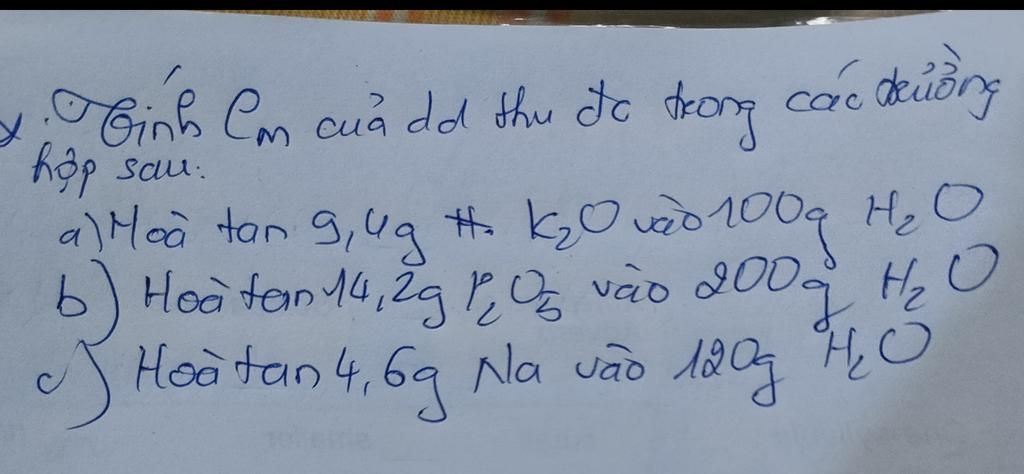 Tính Cm của dd thu đc trong các trường
hợp sau:
a) Hoà tan 9,4g K₂O vào 100g H₂O
b) Hoà tan 14,2g P₂O₅ vào 200g H₂O
c) Hoà tan 4,6g Na vào 120g H₂O